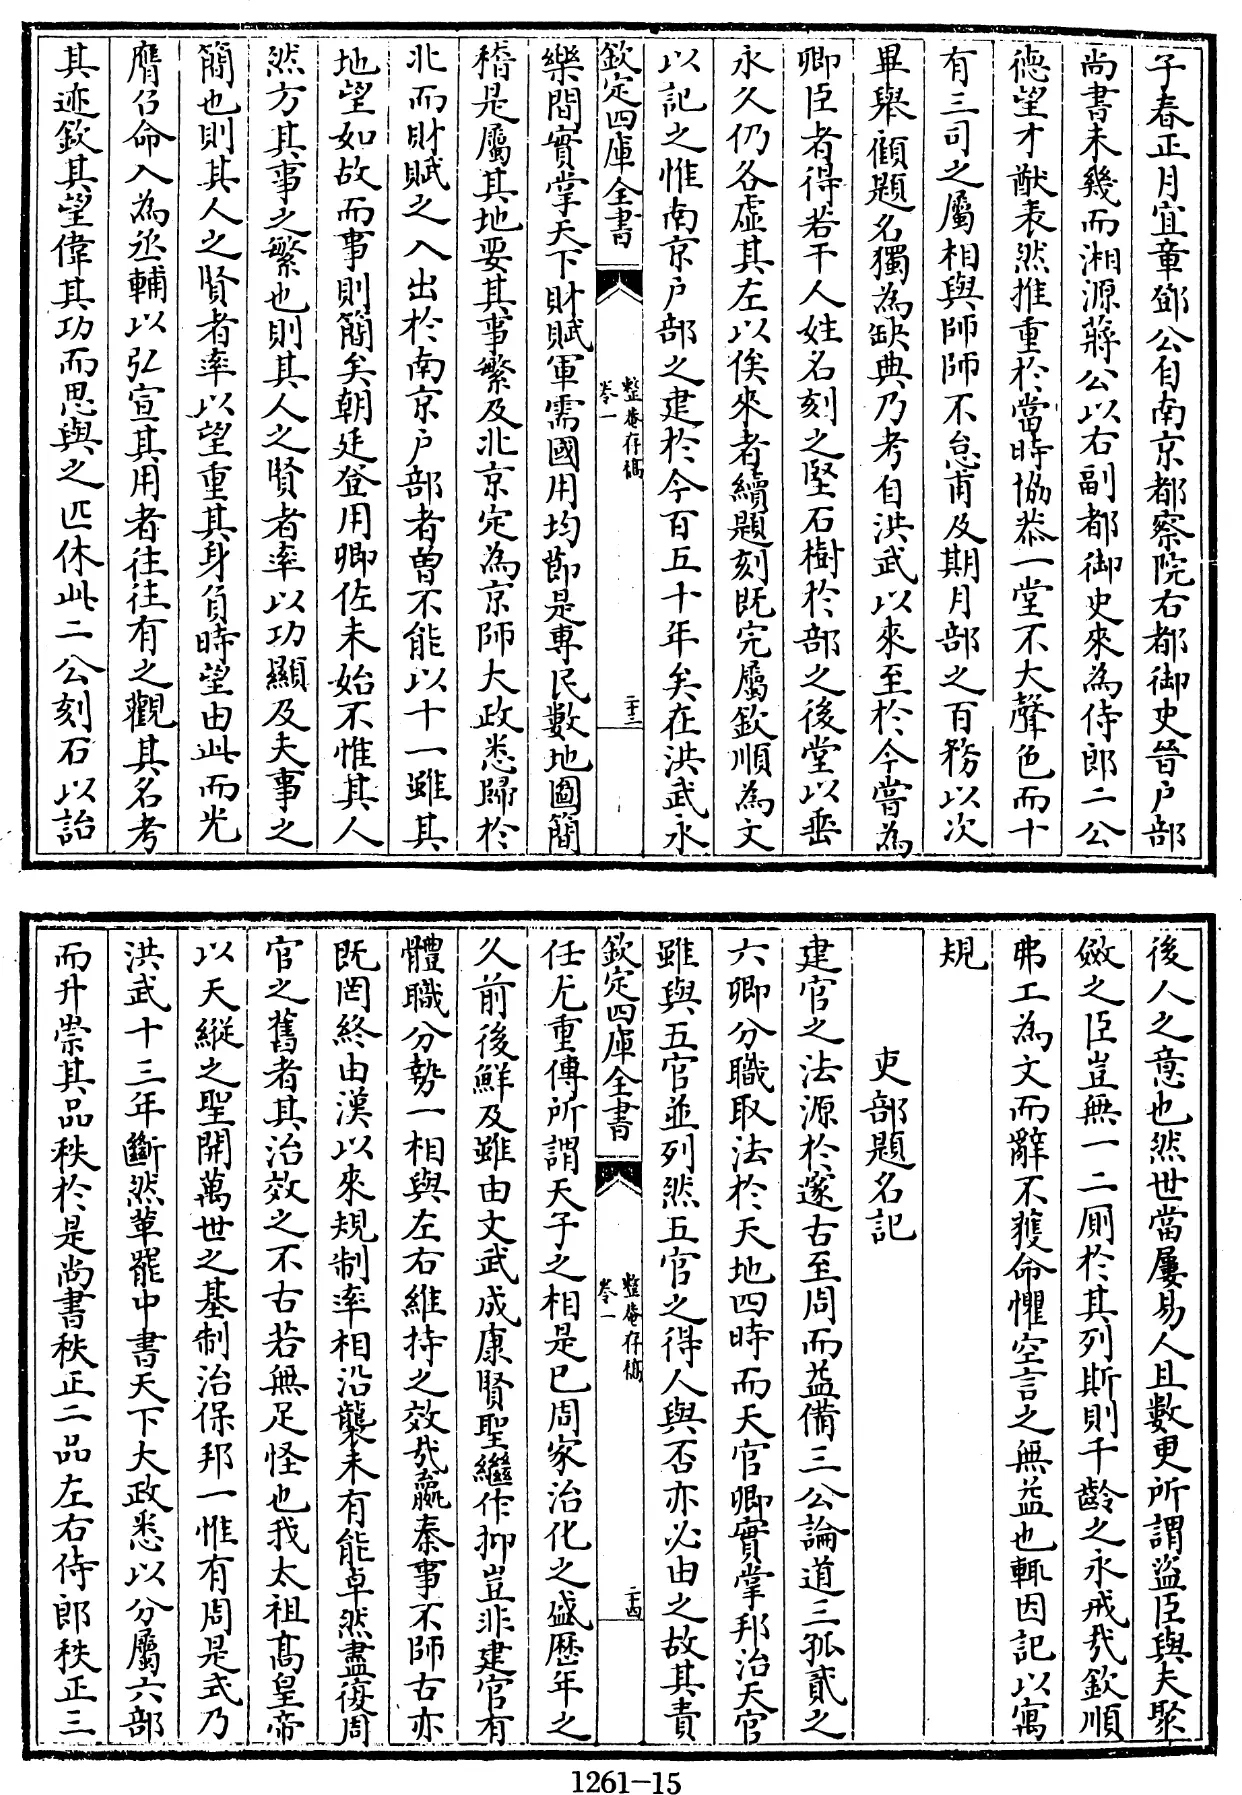 子春正月宜章鄧公自南京都察院右都御史晉户部
尚書未幾而湘源蔣公以右副都御史來為侍郎二公
德望才猷表然推重於當時協恭一堂不大聲色而十
有三司之屬相與師師不怠甫及期月部之百務以次
畢舉顧題名獨為缺典乃考自洪武以來至於今嘗為
卿臣者得若干人姓名刻之堅石樹於部之後堂以垂
永久仍各虛其左以俟來者續題刻既完屬欽順為文
以記之惟南京户部之建於今百五十年矣在洪武永
欽定四庫全書
整菴存稿
卷一
二十三
樂間實掌天下財賦軍需國用均節是專民數地圖簡
稽是屬其地要其事繁及北京定為京師大政悉歸於
北而財賦之入出於南京户部者曾不能以十一雖其
地望如故而事則簡矣朝廷登用卿佐未始不惟其人
然方其事之繁也則其人之賢者率以功顯及夫事之
簡也則其人之賢者率以望重其身負時望由此而光
膺召命入為丞輔以弘宣其用者往往有之觀其名考
其迹欽其望偉其功而思與之匹休此二公刻石以詒
後人之意也然世當屢易人且數更所謂盜臣與夫聚
斂之臣豈無一二厠於其列斯則千齡之永戒哉欽順
弗工為文而辭不獲命懼空言之無益也輒因記以寓
規
吏部題名記
建官之法源於邃古至周而益備三公論道三孤貳之
六卿分職取法於天地四時而天官卿實掌邦治天官
雖與五官並列然五官之得人與否亦必由之故其責
欽定四庫全書
整菴存稿
卷一
二十四
任尤重傳所謂天子之相是已周家治化之盛歷年之
久前後鮮及雖由文武成康賢聖繼作抑豈非建官有
體職分勢一相與左右維持之效哉嬴秦事不師古亦
既罔終由漢以來規制率相沿襲未有能卓然盡復周
官之舊者其治效之不古若無足怪也我太祖高皇帝
以天縱之聖開萬世之基制治保邦一惟有周是式乃
洪武十三年斷然革罷中書天下大政悉以分屬六部
而升崇其品秩於是尚書秩正二品左右侍郎秩正三
1261-15